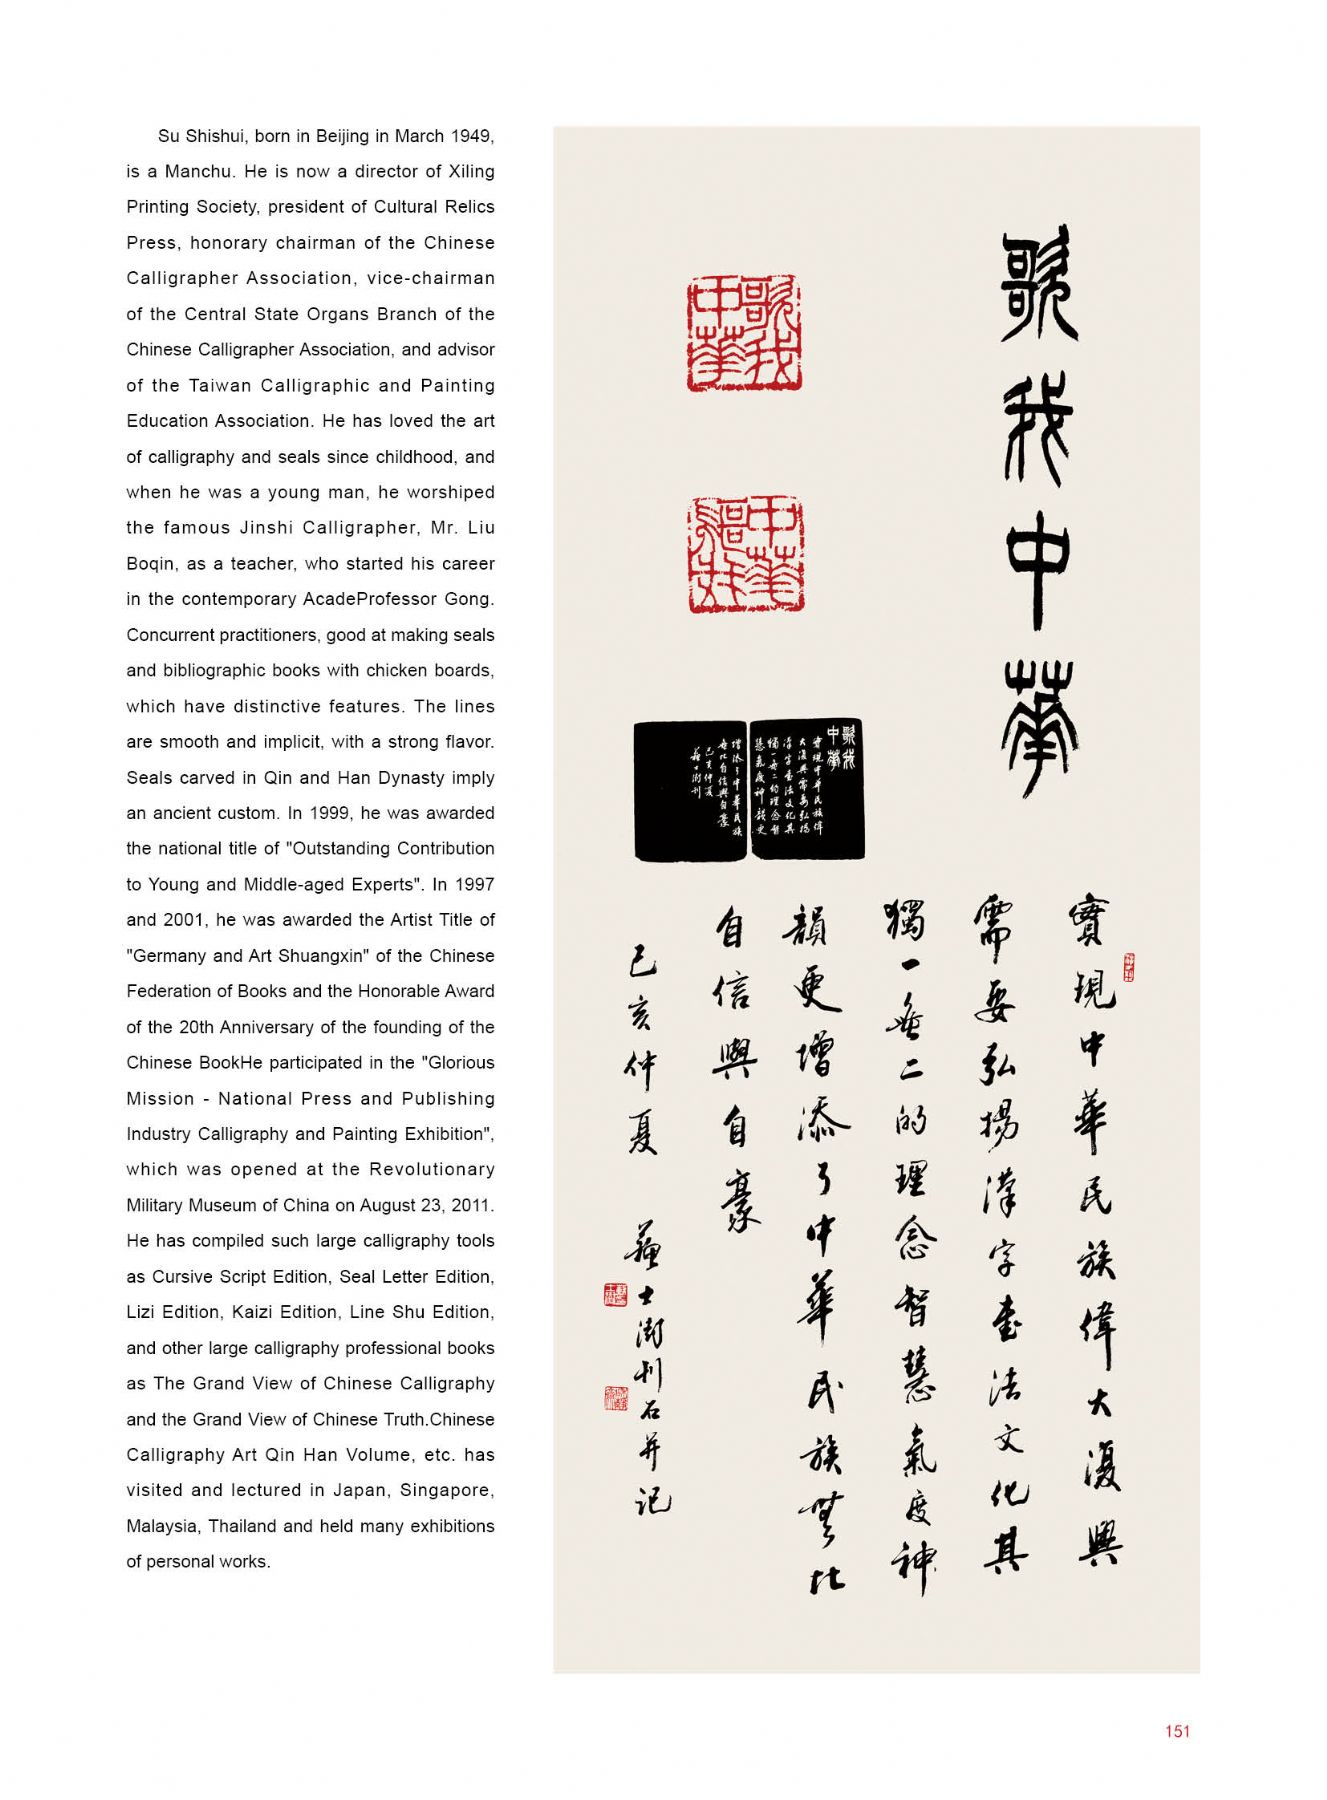 Su Shishui, born in Beijing in March 1949,
is a Manchu. He is now a director of Xiling
Printing Society, president of Cultural Relics
Press, honorary chairman of the Chinese
Calligrapher Association, vice-chairman
of the Central State Organs Branch of the
Chinese Calligrapher Association, and advisor
of the Taiwan Calligraphic and Painting
Education Association. He has loved the art
of calligraphy and seals since childhood, and
when he was a young man, he worshiped
the famous Jinshi Calligrapher, Mr. Liu
Boqin, as a teacher, who started his career
in the contemporary AcadeProfessor Gong.
Concurrent practitioners, good at making seals
and bibliographic books with chicken boards,
which have distinctive features. The lines
are smooth and implicit, with a strong flavor.
Seals carved in Qin and Han Dynasty imply
an ancient custom. In 1999, he was awarded
the national title of "Outstanding Contribution
to Young and Middle-aged Experts". In 1997
and 2001, he was awarded the Artist Title of
"Germany and Art Shuangxin" of the Chinese
Federation of Books and the Honorable Award
of the 20th Anniversary of the founding of the
Chinese BookHe participated in the "Glorious
Mission - National Press and Publishing
Industry Calligraphy and Painting Exhibition",
which was opened at the Revolutionary
Military Museum of China on August 23, 2011.
He has compiled such large calligraphy tools
as Cursive Script Edition, Seal Letter Edition,
Lizi Edition, Kaizi Edition, Line Shu Edition,
and other large calligraphy professional books
as The Grand View of Chinese Calligraphy
and the Grand View of Chinese Truth.Chinese
Calligraphy Art Qin Han Volume, etc. has
visited and lectured in Japan, Singapore,
Malaysia, Thailand and held many exhibitions
of personal works.
歌我中華
歌我中華
歌我
中華
實現中華民族偉
大復興需要弘揚
漢字書法文化其
獨一無二的理念智
慧氣度神韻更
增添了中華民族
無比自信與自豪
己亥仲夏
蘇士澍刊
實現中華民族偉大復興
需要弘揚漢字書法文化其
獨一無二的理念智慧氣度神
韻更增添了中華民族無比
自信與自豪
己亥仲夏 蘇士澍刊石并記
151